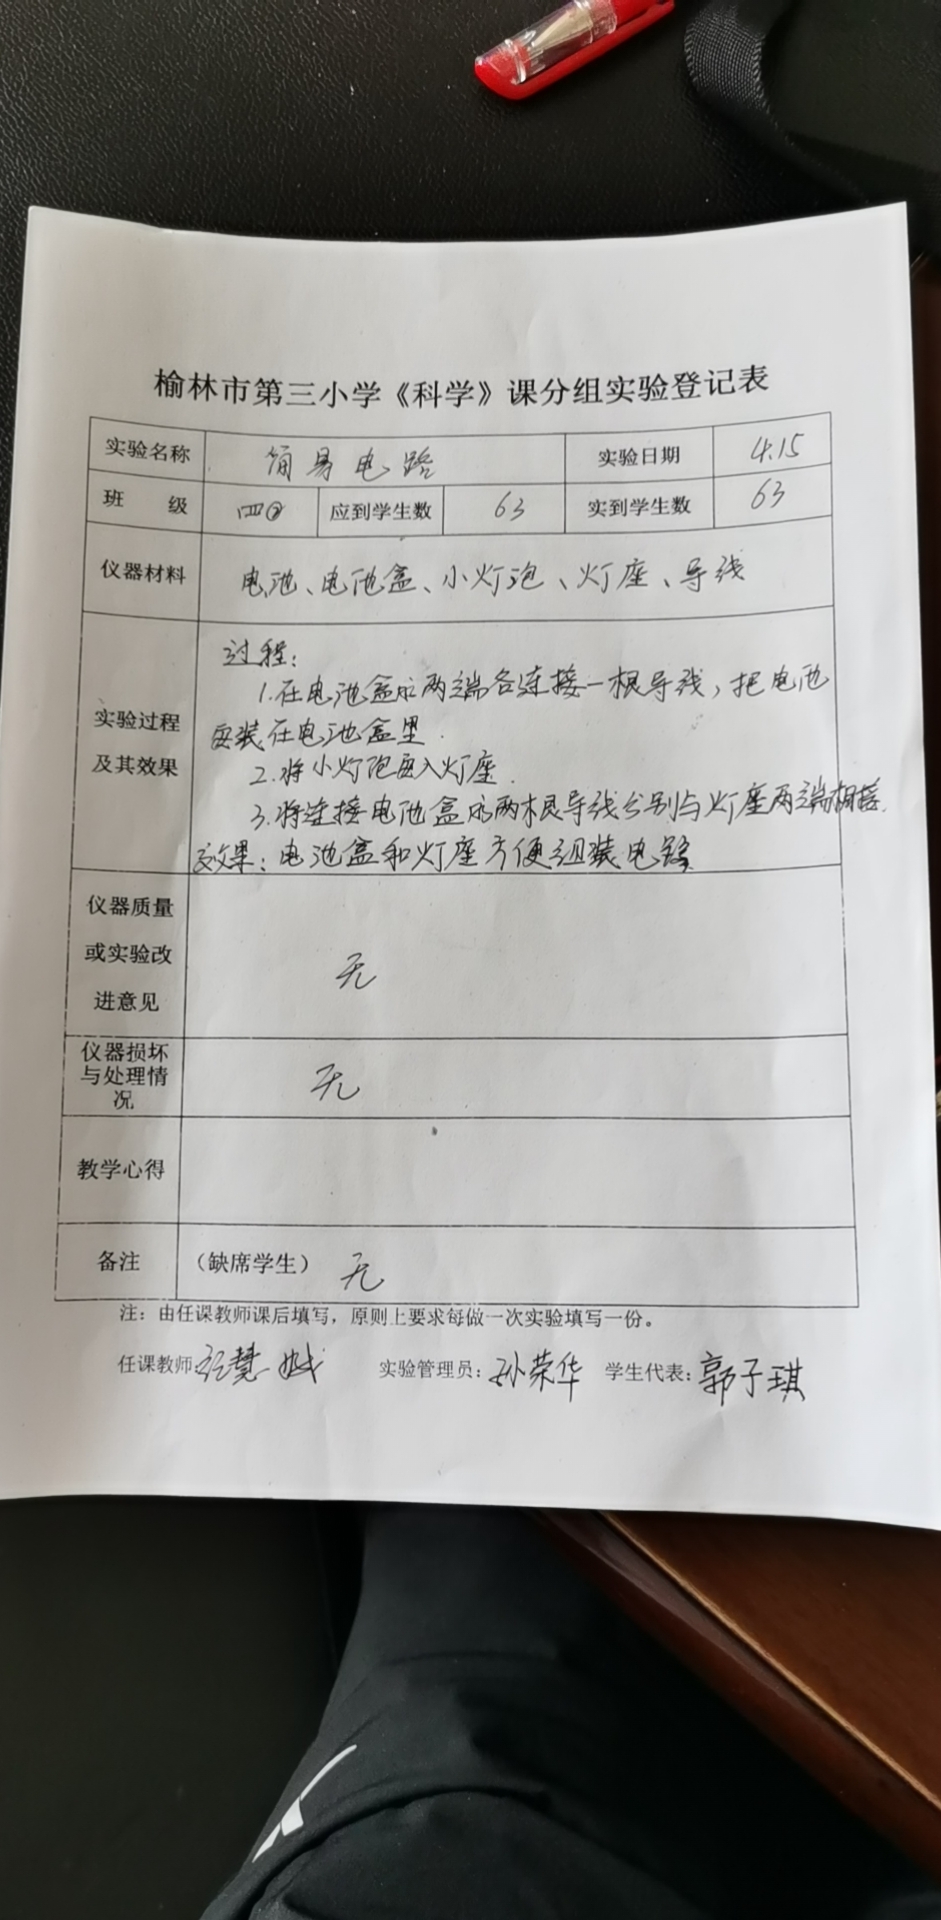 榆林市第三小学《科学》课分组实验登记表
实验名称 简易电路 实验日期 4.15
班 级 四② 应到学生数 63 实到学生数 63
仪器材料 电池、电池盒、小灯泡、灯座、导线
实验过程
及其效果
过程：
1.在电池盒的两端各连接一根导线，把电池
安装在电池盒里.
2.将小灯泡安入灯座.
3.将连接电池盒的两根导线分别与灯座两端相接.
效果：电池盒和灯座方便组装电路
仪器质量
或实验改
进意见
无
仪器损坏
与处理情
况
无
教学心得
备注 （缺席学生） 无
注：由任课教师课后填写，原则上要求每做一次实验填写一份。
任课教师: 实验管理员：孙荣华 学生代表：郭子琪